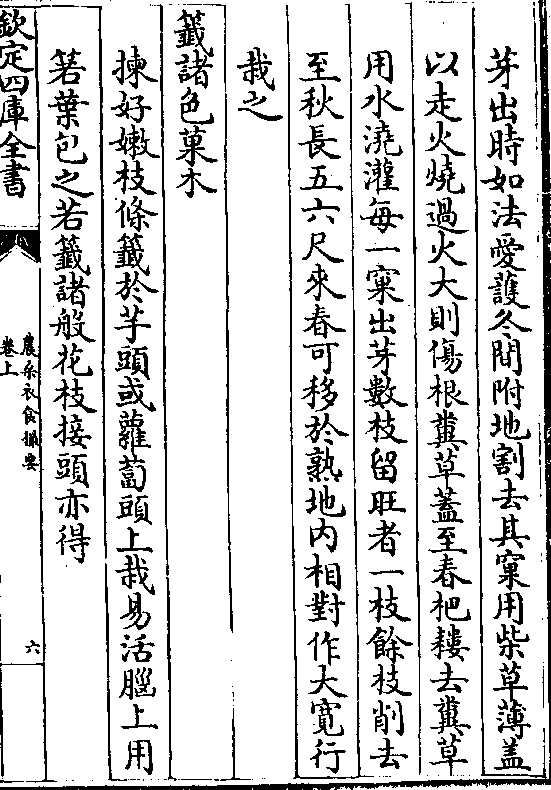 芽出時如法愛護冬間附地割去其窠用柴草薄蓋
以走火燒過火大則傷根糞草蓋至春杷耬去糞草
用水澆灌每一窠出芽數枝留旺者一枝餘枝削去
至秋長五六尺來春可移於熟地内相對作大寛行
栽之
籤諸色菓木
揀好嫩枝條籤於芋頭或蘿蔔頭上栽易活腦上用
箬葉包之若籤諸般花枝接頭亦得
欽定四庫全書
農桑衣食撮要
卷上
六